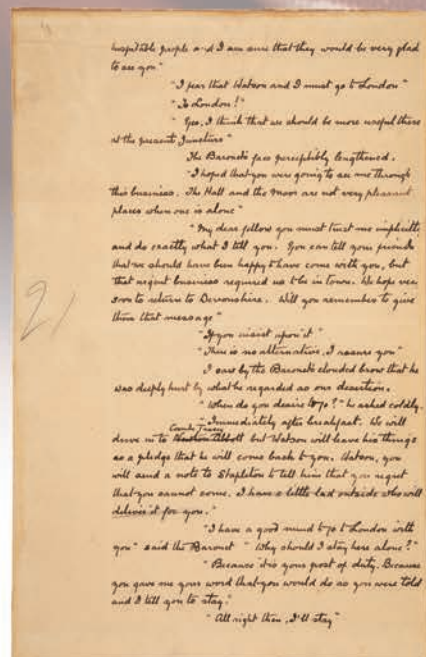 hospitable people and I am sure that they would be very glad
to see you"
"I fear that Watson and I must go to London"
"To London!"
"Yes, I think that we should be more useful there
at the present juncture"
The Baronet's face perceptibly lengthened.
"I hoped that you were going to see me through
this business. The Hall and the Moor are not very pleasant
places when one is alone"
"My dear fellow you must trust me implicitly
and do exactly what I tell you. You can tell your friends
that we should have been happy to have come with you, but
that urgent business required us to be in town. We hope very
soon to return to Devonshire. Will you remember to give
them that message"
"If you insist upon it"
"There is no alternative, I assure you"
I saw by the Baronet's clouded brow that he
was deeply hurt by what he regarded as our desertion.
"When do you desire to go?" he asked coldly.
"Immediately after breakfast. We will
Coombe Tracey
drive in to Newton Abbott but Watson will leave his things
as a pledge that he will come back to you. Watson, you
will send a note to Stapleton to tell him that you regret
that you cannot come. I have a little lad outside who will
deliver it for you."
"I have a good mind to go to London with
you" said the Baronet "Why should I stay here alone?"
"Because it is your post of duty. Because
you gave me your word that you would do as you were told
and I tell you to stay."
"All right then, I'll stay"
21